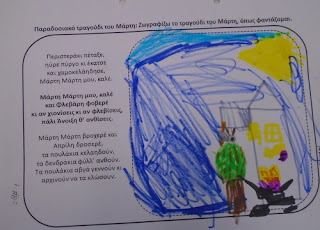 Παραδοσιακό τραγούδι του Μάρτη: Ζωγραφίζω το τραγούδι του Μάρτη, όπως φαντάζομαι.
Περιστεράκι πέταξε,
πύρε πύργο κι έκατσε
και χαμοκελάηδησε,
Μάρτη Μάρτη μου, καλέ.
Μάρτη Μάρτη μου, καλέ
και Φλεβάρη φοβερέ
κι αν χιονίσεις κι αν φλεβίσεις,
πάλι Άνοιξη θ' ανθίσεις.
Μάρτη Μάρτη βροχερέ και
Απρίλη δροσερέ,
τα πουλάκια κελαηδούν,
τα δενδράκια φύλλ' ανθούν.
Τα πουλάκια αβγά γεννούν κι
αρχινούν να τα κλώσουν.